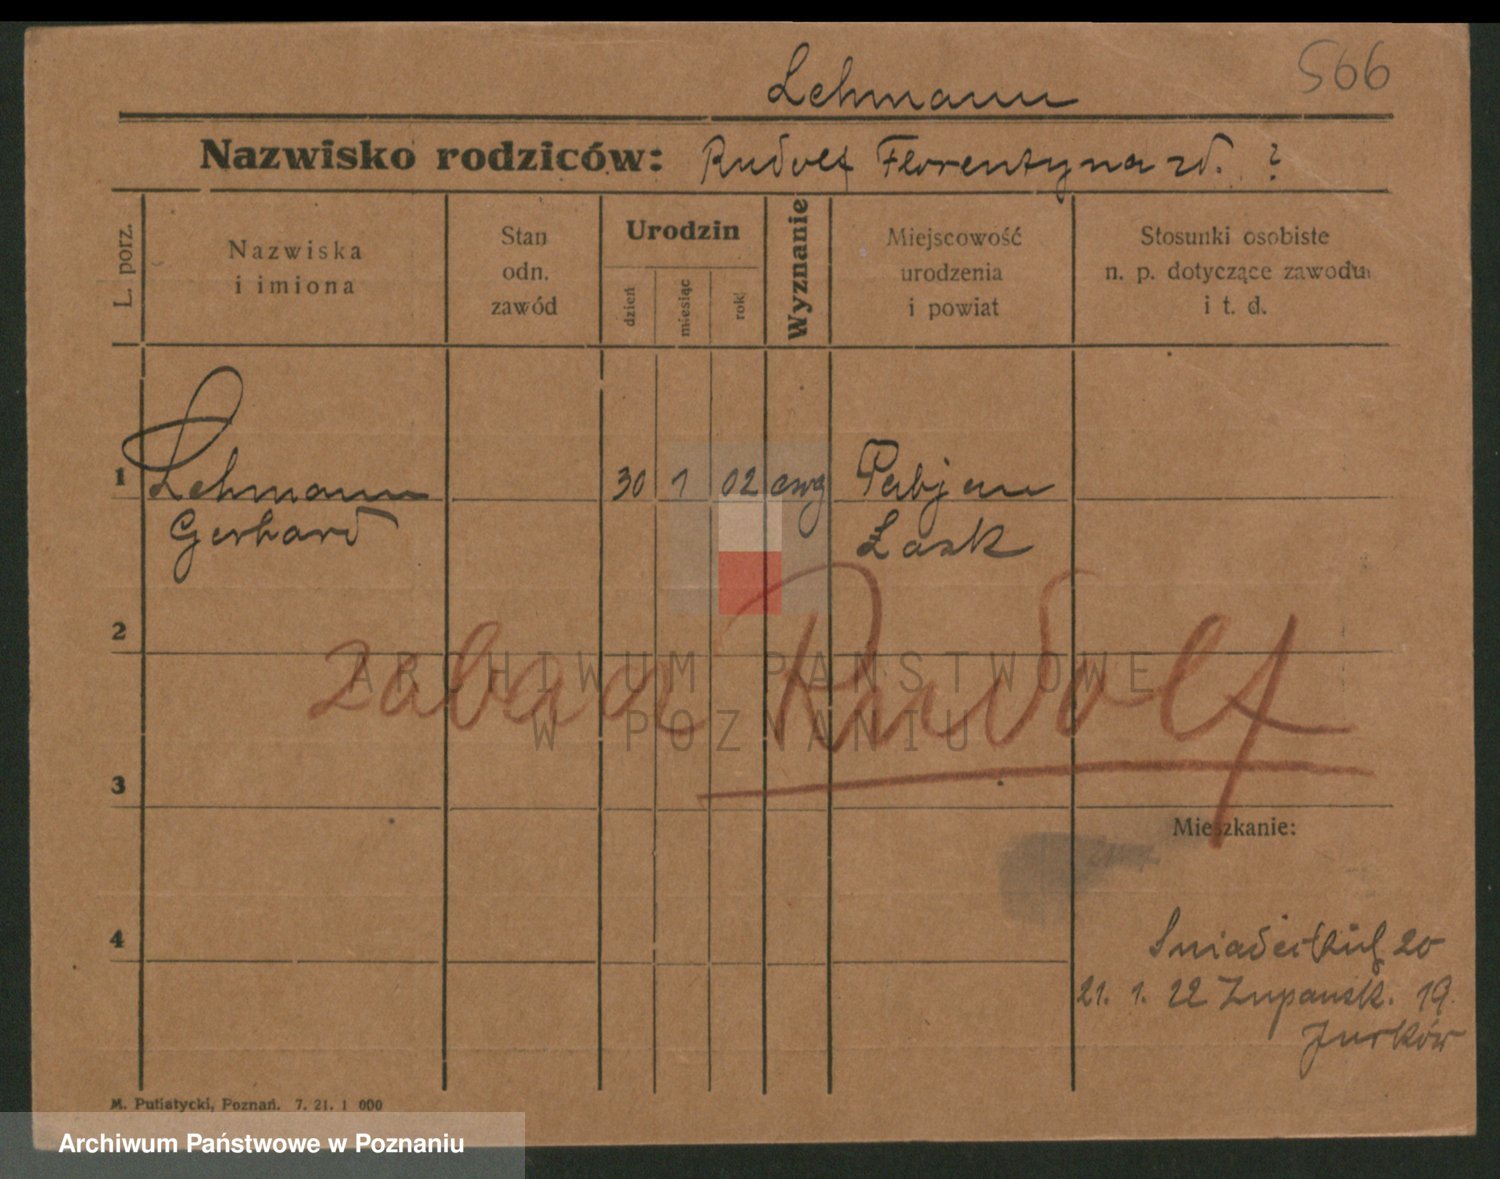 Lehmann
566
Nazwisko rodziców: Rudolf Florentyna zd. ?
L. porz.
Nazwiska
i imiona
Stan
odn.
zawód
Urodzin
dzień
miesiąc
rok
Wyznanie
Miejscowość
urodzenia
i powiat
Stosunki osobiste
n. p. dotyczące zawodu
i t. d.
1 Lehmann 30 1 02 ewg
Gerhard Łask
2
Rudolf
3
Mieszkanie:
4
20
21. 1. 22 Zupansk. 19.
Jurków
M. Putiatycki, Poznań. 7. 21. 1 000
ARCHIWUM PAŃSTWOWE
W POZNANIU
Archiwum Państwowe w Poznaniu